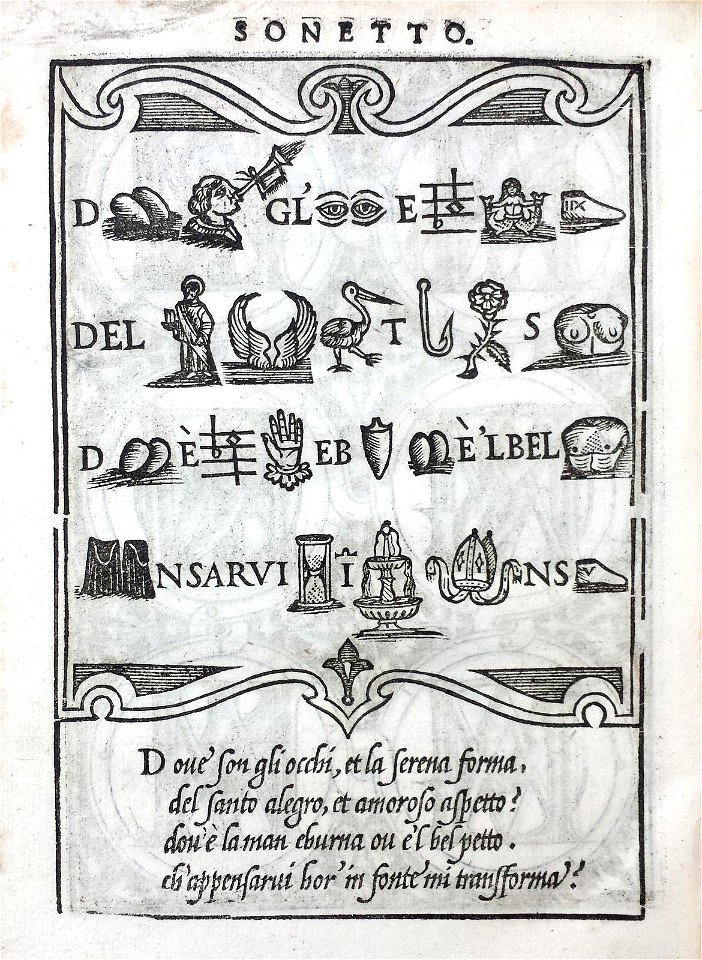 SONETTO.
D GL' E IIX
DEL T S
D È EB È'LBEL
NSARVI Ī NS V
Doue son gli occhi, et la serena forma,
del santo alegro, et amoroso aspetto?
dou'è la man eburna ou è'l bel petto.
ch'appensarui hor' in fonte mi transforma?